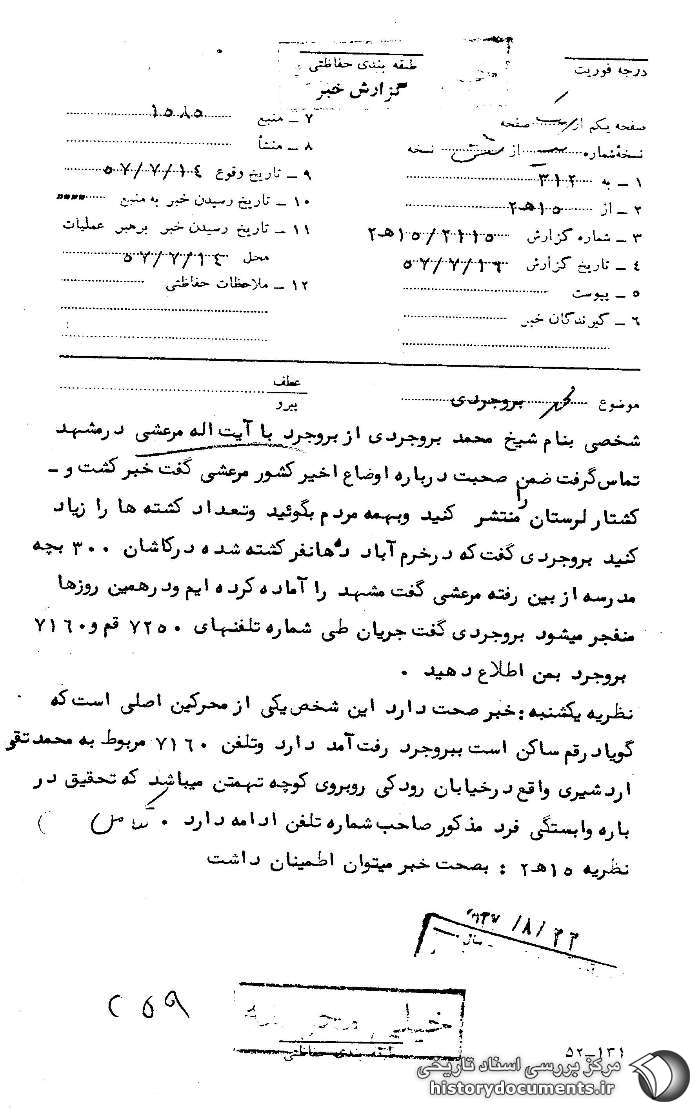 درجه فوریت
طبقه بندی حفاظتی
گزارش خبر
صفحه یکم از یک صفحه
نسخه شماره از نسخه
۱ ـ به ۳۱۲
۲ ـ از ۱۵هـ۲
۳ ـ شماره گزارش ۱۵/۲۱۱۵هـ۲
۴ ـ تاریخ گزارش ۵۷/۷/۱۶
۵ ـ پیوست
۶ ـ گیرندگان خبر
۷ ـ منبع ۱۵۸۵
۸ ـ منشأ
۹ ـ تاریخ وقوع ۵۷/۷/۱۴
۱۰ ـ تاریخ رسیدن خبر به منبع ""
۱۱ ـ تاریخ رسیدن خبر برهبر عملیات
محل ۵۷/۷/۱۴
۱۲ ـ ملاحظات حفاظتی
موضوع بروجردی
عطف
پیرو
شخصی بنام شیخ محمد بروجردی از بروجرد با آیت اله مرعشی درمشهد
تماس گرفت ضمن صحبت درباره اوضاع اخیر کشور مرعشی گفت خبر کشت و ـ
کشتار لرستان را منتشر کنید وبهمه مردم بگوئید وتعداد کشته ها را زیاد
کنید بروجردی گفت که درخرم آباد دهانفر کشته شده درکاشان ۳۰۰ بچه
مدرسه از بین رفته مرعشی گفت مشهد را آماده کرده ایم ودرهمین روزها
منفجر میشود بروجردی گفت جریان طی شماره تلفنهای ۷۲۵۰ قم و۷۱۶۰
بروجرد بمن اطلاع دهید .
نظریه یکشنبه : خبر صحت دارد این شخص یکی از محرکین اصلی است که
گویا درقم ساکن است ببروجرد رفت آمد دارد وتلفن ۷۱۶۰ مربوط به محمدتقی
اردشیری واقع درخیابان رودکی روبروی کوچه تهمتن میباشد که تحقیق در
باره وابستگی فرد مذکور صاحب شماره تلفن ادامه دارد . کامل
نظریه ۱۵هـ۲ : بصحت خبر میتوان اطمینان داشت
/۸/۲۲
سال
خیلی محرمانه
طبقه بندی حفاظتی
۲۵۹
۵۲-۱۳۱
مرکز بررسی اسناد تاریخی
historydocuments.ir